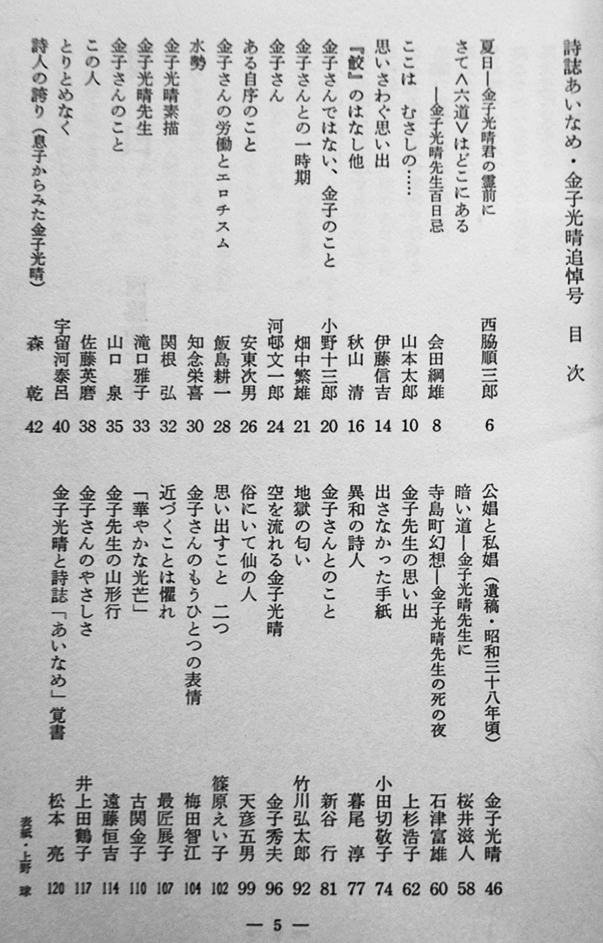 詩誌あいなめ・金子光晴追悼号 目次
夏日―金子光晴君の霊前に 西脇順三郎 6
さて〈六道〉はどこにある
―金子光晴先生百日忌 会田綱雄 8
ここは むさしの…… 山本太郎 10
思いさわぐ思い出 伊藤信吉 14
『鮫』のはなし他 秋山清 16
金子さんではない、金子のこと 小野十三郎 20
金子さんとの一時期 畑中繁雄 21
金子さん 河邨文一郎 24
ある自序のこと 安東次男 26
金子さんの労働とエロチスム 飯島耕一 28
水勢 知念栄喜 30
金子光晴素描 関根弘 32
金子光晴先生 滝口雅子 33
金子さんのこと 山口泉 35
この人 佐藤英磨 38
とりとめなく 宇留河泰呂 40
詩人の誇り(息子からみた金子光晴) 森乾 42
公娼と私娼(遺稿・昭和三十八年頃) 金子光晴 46
暗い道―金子光晴先生に 桜井滋人 58
寺島町幻想―金子光晴先生の死の夜 石津富雄 60
金子先生の思い出 上杉浩子 62
出さなかった手紙 小田切敬子 74
異和の詩人 暮尾淳 77
金子さんとのこと 新谷行 81
地獄の匂い 竹川弘太郎 92
空を流れる金子光晴 金子秀夫 96
俗にいて仙の人 天彦五男 99
思い出すこと 二つ 篠原えい子 102
金子さんのもうひとつの表情 梅田智江 104
近づくことは懼れ 最匠展子 107
「華やかな光芒」 古関金子 110
金子先生の山形行 遠藤恒吉 114
金子さんのやさしさ 井上田鶴子 117
金子光晴と詩誌「あいなめ」覚書 松本亮 120
表紙・上野
― 5 ―